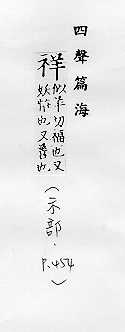 四聲篇海
祥
似羊切福也又
妖怪也又善也
（示部．
P.454）